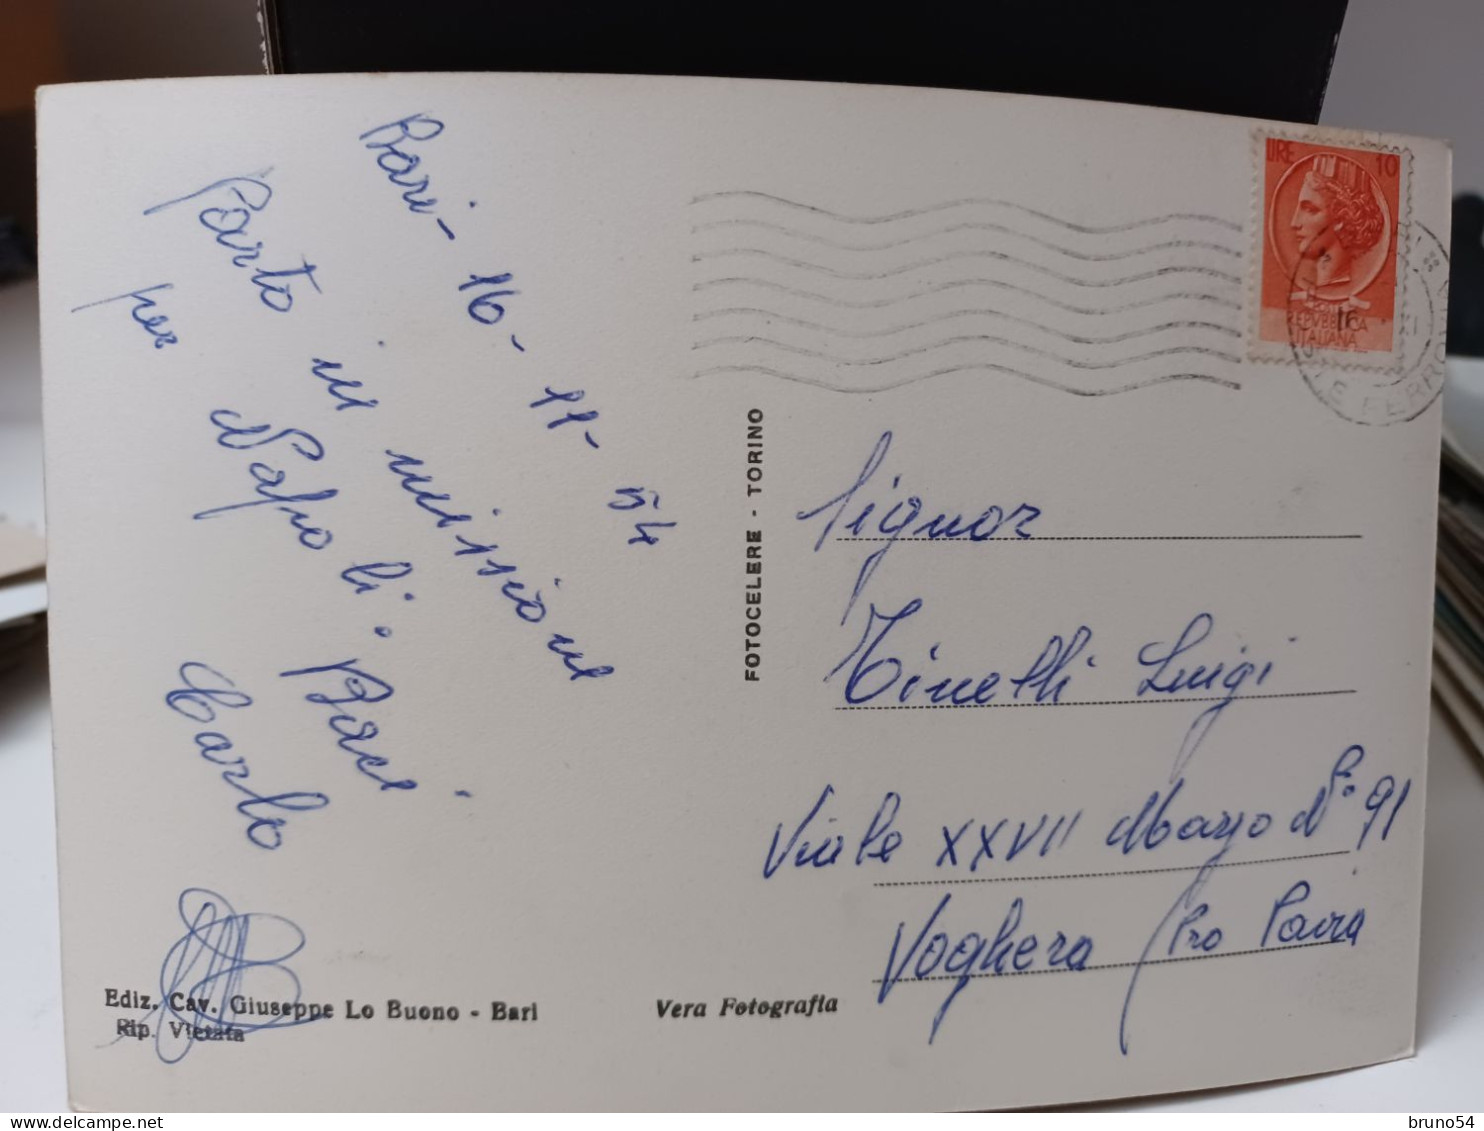 Bari - 16 - 11 - 54
Parto in missione
per Napoli. Baci -
Carlo
Ediz. Cav. Giuseppe Lo Buono - Bari
Rip. Vietata
Vera Fotografia
FOTOCELERE - TORINO
LIRE 10
REPVBBLICA
ITALIANA
Signor
Tinelli Luigi
Viale XXVII Marzo N° 91
Voghera (Pro Pavia
bruno54